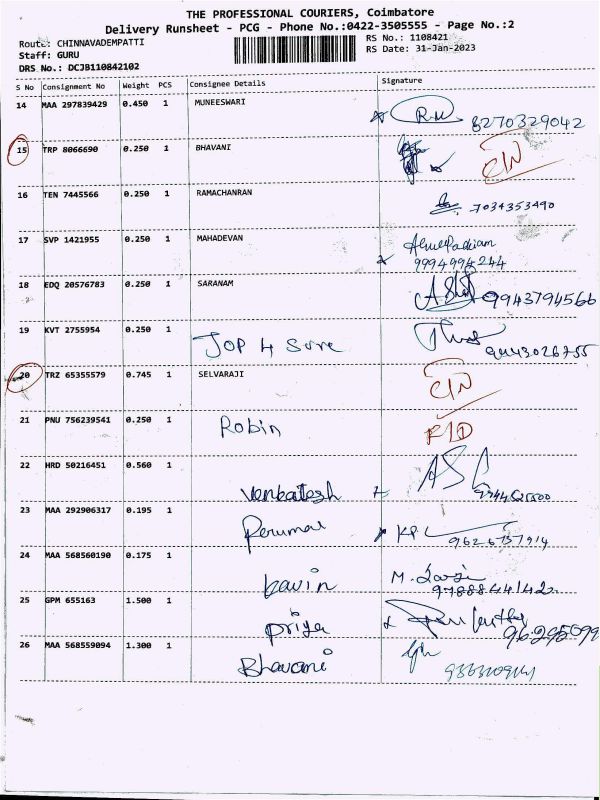 THE PROFESSIONAL COURIERS, Coimbatore
Delivery Runsheet - PCG - Phone No.:0422-3505555 - Page No.:2
Route: CHINNAVADEMPATTI
RS No.: 1108421
Staff: GURU
RS Date: 31-Jan-2023
DRS No.: DCJB110842102
S No Consignment No Weight PCS Consignee Details Signature
14 MAA 297839429 0.450 1 MUNEESWARI 8270329042
15 TRP 8066690 0.250 1 BHAVANI
16 TEN 7445566 0.250 1 RAMACHANRAN 7034353490
17 SVP 1421955 0.250 1 MAHADEVAN
9994994244
18 EDQ 20576783 0.250 1 SARANAM 9943794566
19 KVT 2755954 0.250 1 JOP 4 Sure 9443026755
20 TRZ 65355579 0.745 1 SELVARAJI
21 PNU 756239541 0.250 1 Robin
22 HRD 50216451 0.560 1 Venbatesh
23 MAA 292906317 0.195 1 Perumal KP 9626757914
24 MAA 568560190 0.175 1 kavin
9788844142
25 GPM 655163 1.500 1 priya
26 MAA 568559094 1.300 1 Bhavani